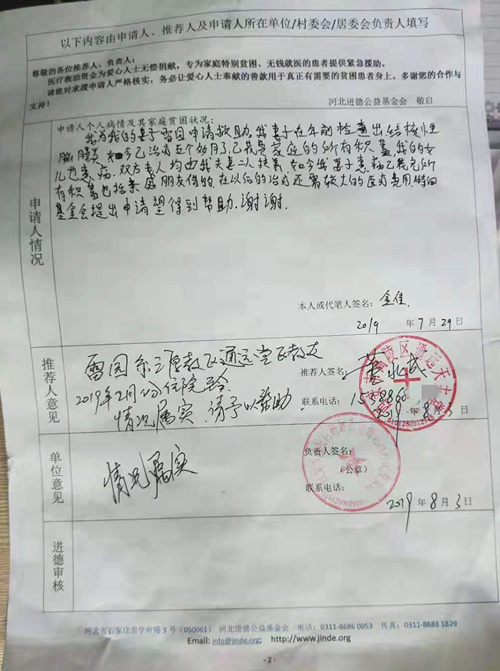 以下内容由申请人、推荐人及申请人所在单位/村委会/居委会负责人填写
尊敬的各位推荐人、负责人：
医疗救助资金为爱心人士无偿捐献，专为家庭特别贫困、无钱就医的患者提供紧急援助。
请您对求援申请人严格核实，务必让爱心人士奉献的善款用于真正有需要的贫困患者身上。多谢您的合作与
支持！
河北进德公益基金会 敬启
申请人情况
申请人个人病情及其家庭贫困状况：
我为我的妻子雷园申请救助，我妻子在年前检查出结核性
脑膜炎 如今已治疗五个多月了已我是家庭的所有积蓄 我的女
儿也患病，双方老人均由我夫妻二人扶养，如今我妻子患病已花光所
有积蓄也 朋友借的 在以后的治疗还需较大的医疗费用，特向
基金会提出申请望得到帮助，谢谢。
本人或代笔人签名：金佳
2019 年 7 月 29 日
推荐人意见
雷园系三原教区通远堂区教友
2019年2月 住院
情况属实，请予以帮助。
推荐人签名：
联系电话：
2019 年 8 月 3 日
单位意见
情况属实
负责人签名：
（公章）
联系电话：
2019 年 8 月 3 日
进德审核
河北省石家庄市学府路 3 号（050061） 河北进德公益基金会 电话：0311-8686 0053 传真：0311-8683 1829
Email: info@jinde.org http://www.jinde.org
- 2 -